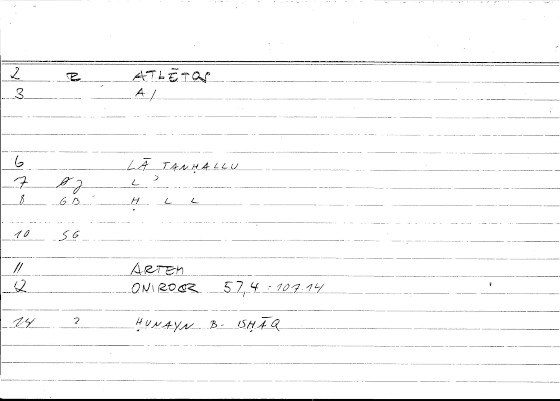 2 E ATLĒTOS
3 A /
6 LĀ TANḤALLU
7 Aj L ʾ
8 GB Ḥ L L
10 SG
11 ARTEM
12 ONIROCR 57,4 = 107.14
14 2 ḤUNAYN B. ISḤĀQ